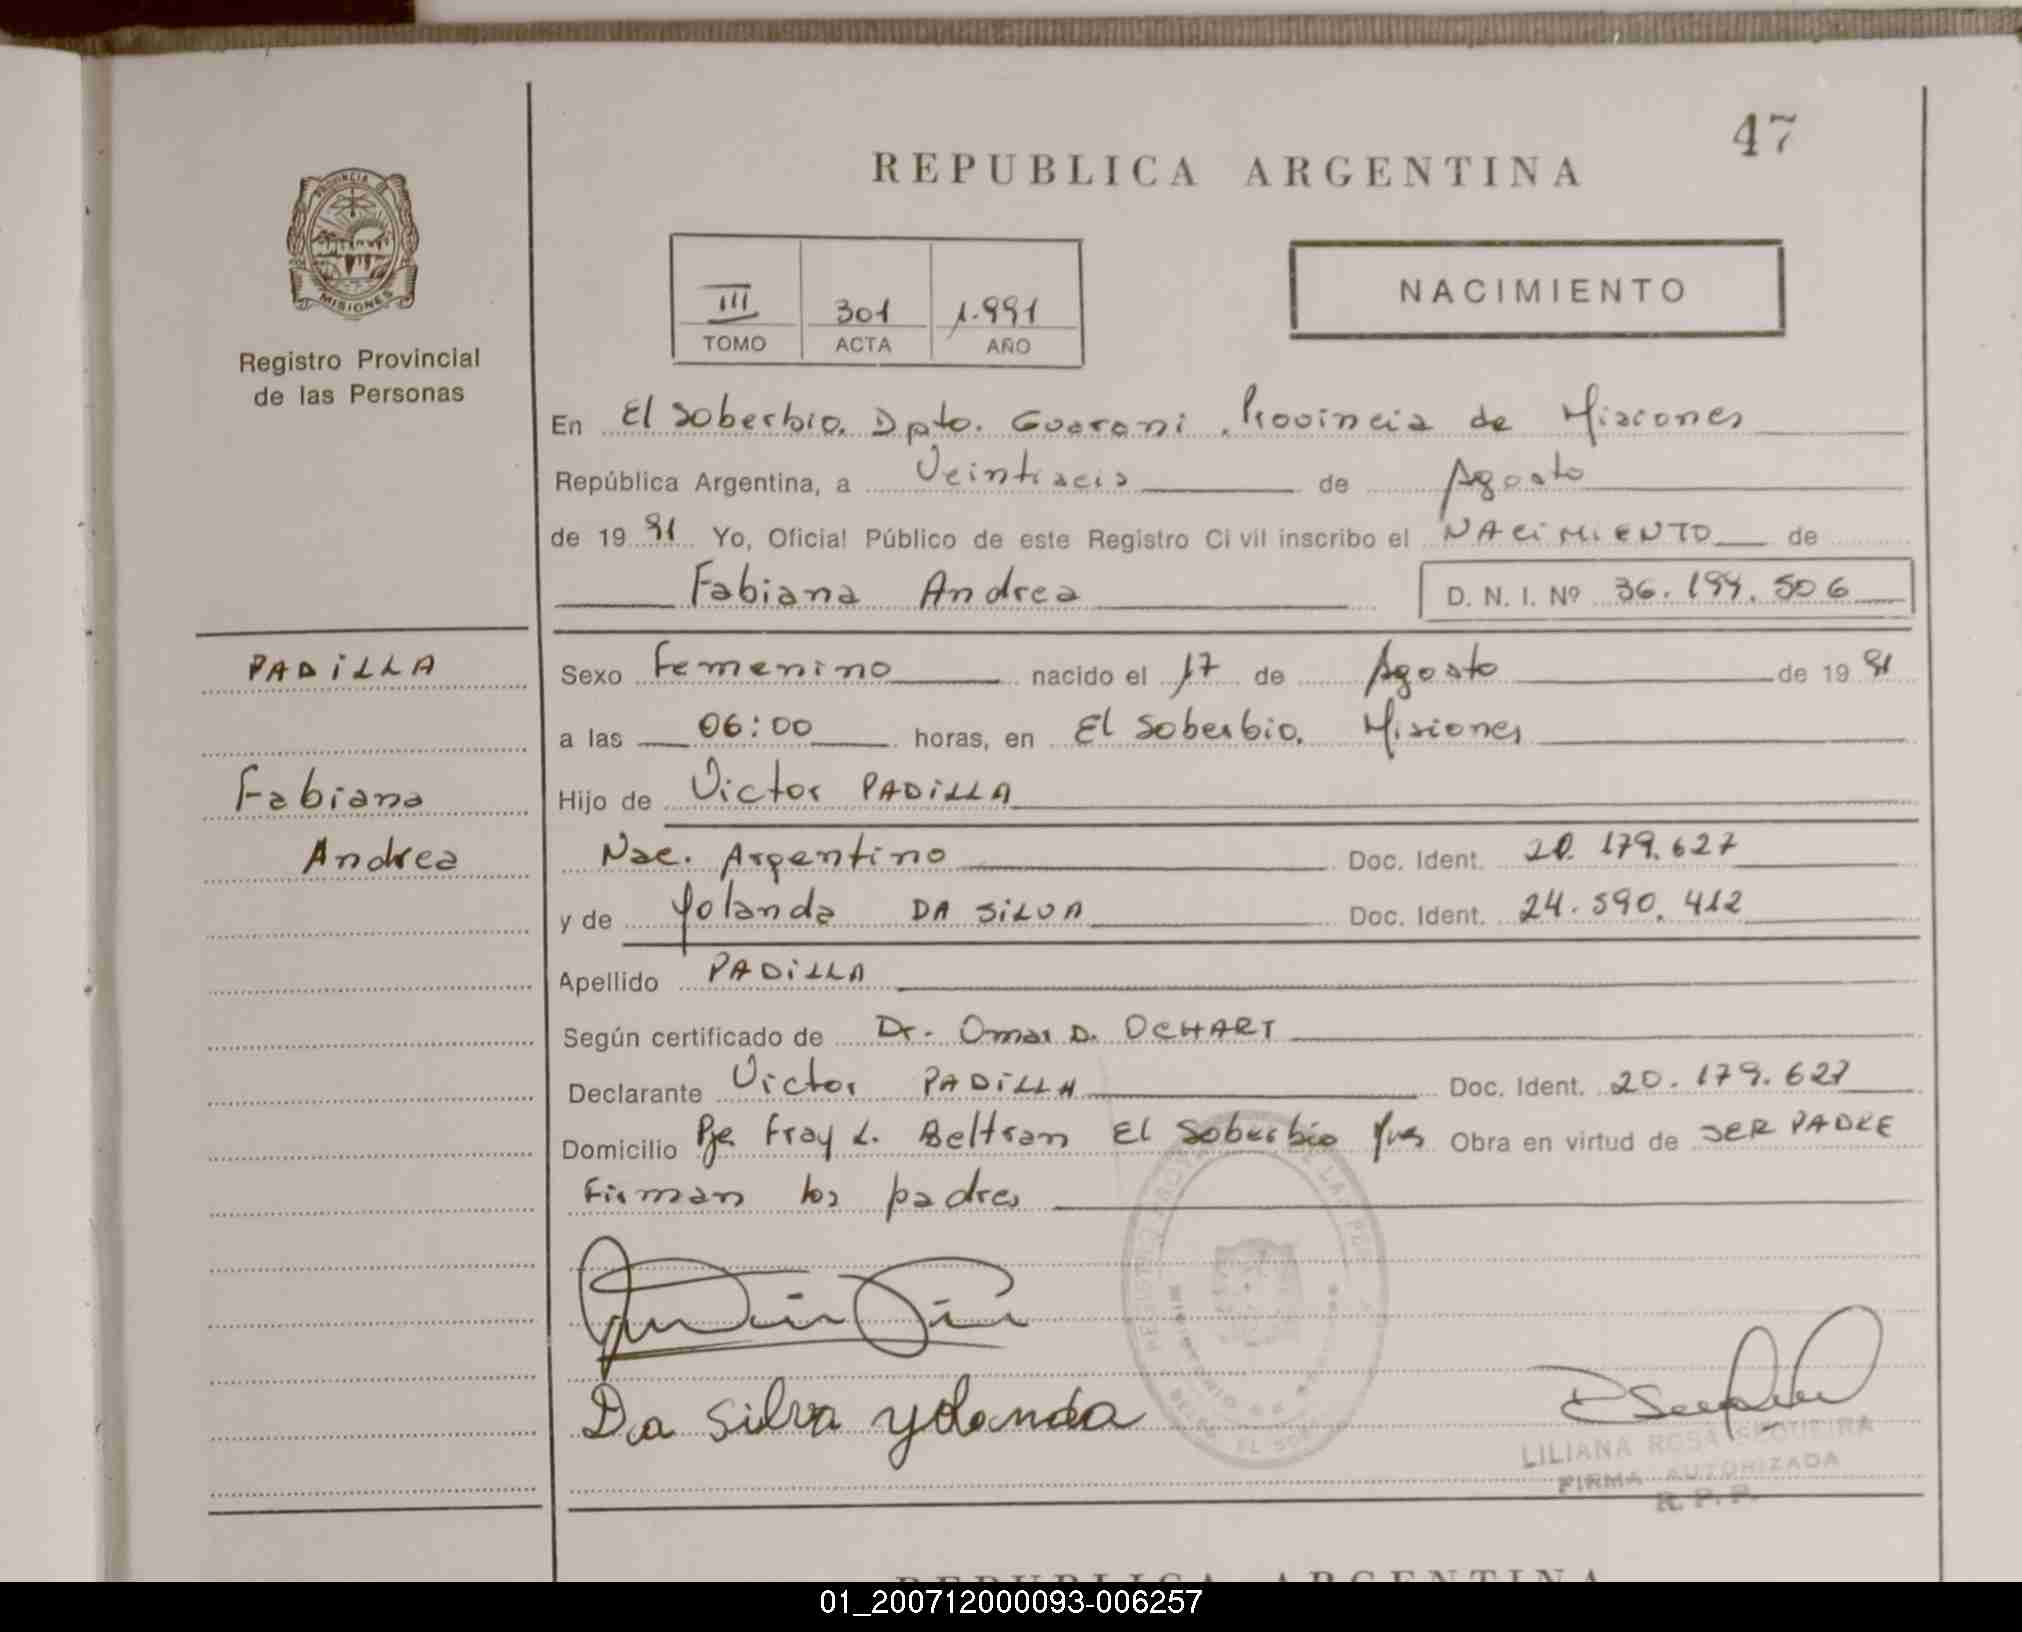 47
REPUBLICA ARGENTINA
PROVINCIA DE
MISIONES
Registro Provincial
de las Personas
III 301 1.991
TOMO ACTA AÑO
NACIMIENTO
En El Soberbio. Dpto. Guarani. Provincia de Misiones
República Argentina, a Veintiseis de Agosto
de 19 91 Yo, Oficial Público de este Registro Civil inscribo el NACiMiENTO de
Fabiana Andrea D. N. I. Nº 36.199.506
PADiLLA
Fabiana
Andrea
Sexo Femenino nacido el 17 de Agosto de 19 91
a las 06:00 horas, en El Soberbio. Misiones
Hijo de Victor PADiLLA
Nac. Argentino Doc. Ident. 20.179.627
y de Yolanda DA SiLVA Doc. Ident. 24.590.412
Apellido PADiLLA
Según certificado de Dr. Omar D. OCHART
Declarante Victor PADiLLA Doc. Ident. 20.179.627
Domicilio Pje Fray L. Beltran El Soberbio Obra en virtud de SER PADRE
Firman los padres
Da Silva yolanda
LILIANA ROSA SEQUEIRA
FIRMA AUTORIZADA
R. P. P.
REPUBLICA ARGENTINA
01_200712000093-006257